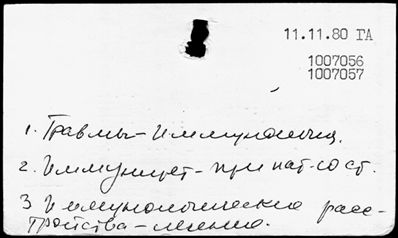 11.11.80 ГА
1007056
1007057
1. Травмы - Иммунология.
2. Иммунитет - при пат. сост.
3 Иммунологические расс-
тройства - лечение.